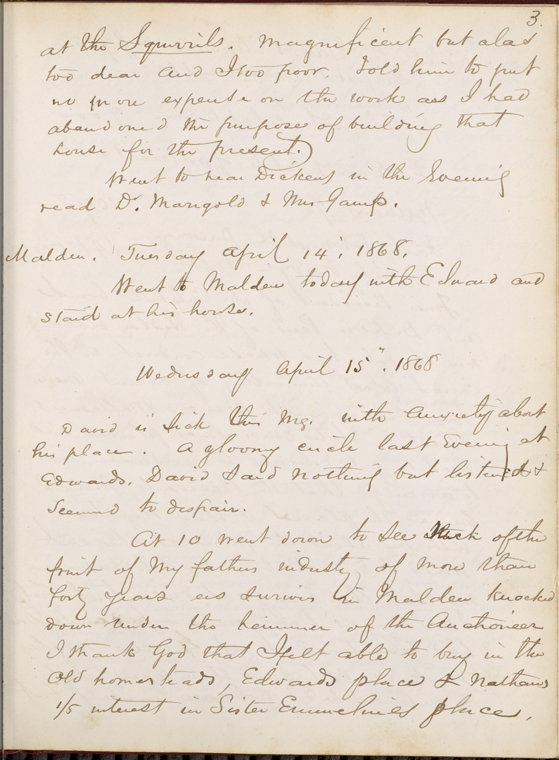 3.
at the Squirrils. Magnificent but alas
too dear and I too poor. Told him to put
no more expense on the work as I had
abandoned the purpose of building that
house for the present.
Went to hear Dickens in the Evening
read Dr. Marigold & Mrs Gamp.
Malden. Tuesday April 14", 1868.
Went to Malden today with Edward and
staid at his house.
Wednesday April 15". 1868
David is sick this Mg. with anxiety about
his place. A gloomy circle last Evening at
Edwards. David said nothing but listened &
seemed to despair.
At 10 went down to see much of the
fruit of my fathers industry of more than
forty years as survives in Malden knocked
down under the hammer of the Auctioneer
I thank God that I felt able to buy in the
old homesteads, Edwards place & Nathans
1/5 interest in Sister Emmelines place.